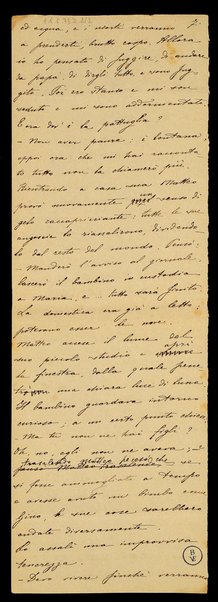 ed acqua, e i morti verranno
a prenderti, brutto rospo. Allora
io ho pensato di fuggire, di andare
da papà, di dirgli tutto e sono fug
gito. Poi ero stanco e mi son
seduto e mi sono addormentato.
E ora dov'è la pattuglia?
— Non aver paura: è lontana
eppoi ora che mi hai racconta
to tutto non la chiamerò più.
Rientrando a casa sua Matteo
provò nuovamente un senso di
gelo raccapricciante: tutte le sue
angoscie lo riassalirono, dividendo
lo dal resto del mondo. Pensò:
— Manderò l'avviso al giornale,
lascerò il bambino in custodia
a Maria, e.. tutto sarà finito.
La domestica era già a letto
potevano esser le nove.
Matteo accese il lume del
suo piccolo studio e aprì
la finestra dalla quale pene
trò una chiara luce di luna.
Il bambino guardava intorno
curioso; a un certo punto chiese:
— Ma tu non ne hai figli?
Oh, no, egli non ne aveva;
Matteo pensò che se
si fosse ammogliato a tempo
e avesse avuto un bimbo come
Gino, le sue cose sarebbero
andate diversamente.
Lo assalì una improvvisa
tenerezza.
— Devo vivere finché verranno